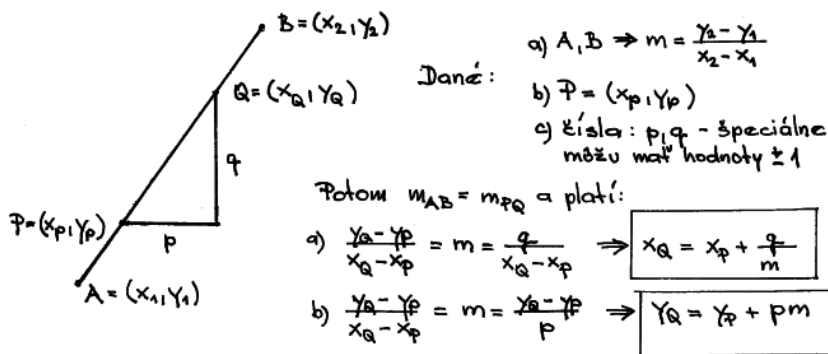 B = (x₂, y₂)
Q = (x_Q, y_Q)
q
P = (x_p, y_p)
p
A = (x₁, y₁)
Dané:
a) A, B ⇒ m = (y₂ - y₁)/(x₂ - x₁)
b) P = (x_p, y_p)
c) čísla: p, q - špeciálne
môžu mať hodnoty ± 1
Potom m_AB = m_PQ a platí:
a) (y_Q - y_p)/(x_Q - x_p) = m = q/(x_Q - x_p) ⇒ x_Q = x_p + q/m
b) (y_Q - y_p)/(x_Q - x_p) = m = (y_Q - y_p)/p ⇒ y_Q = y_p + pm